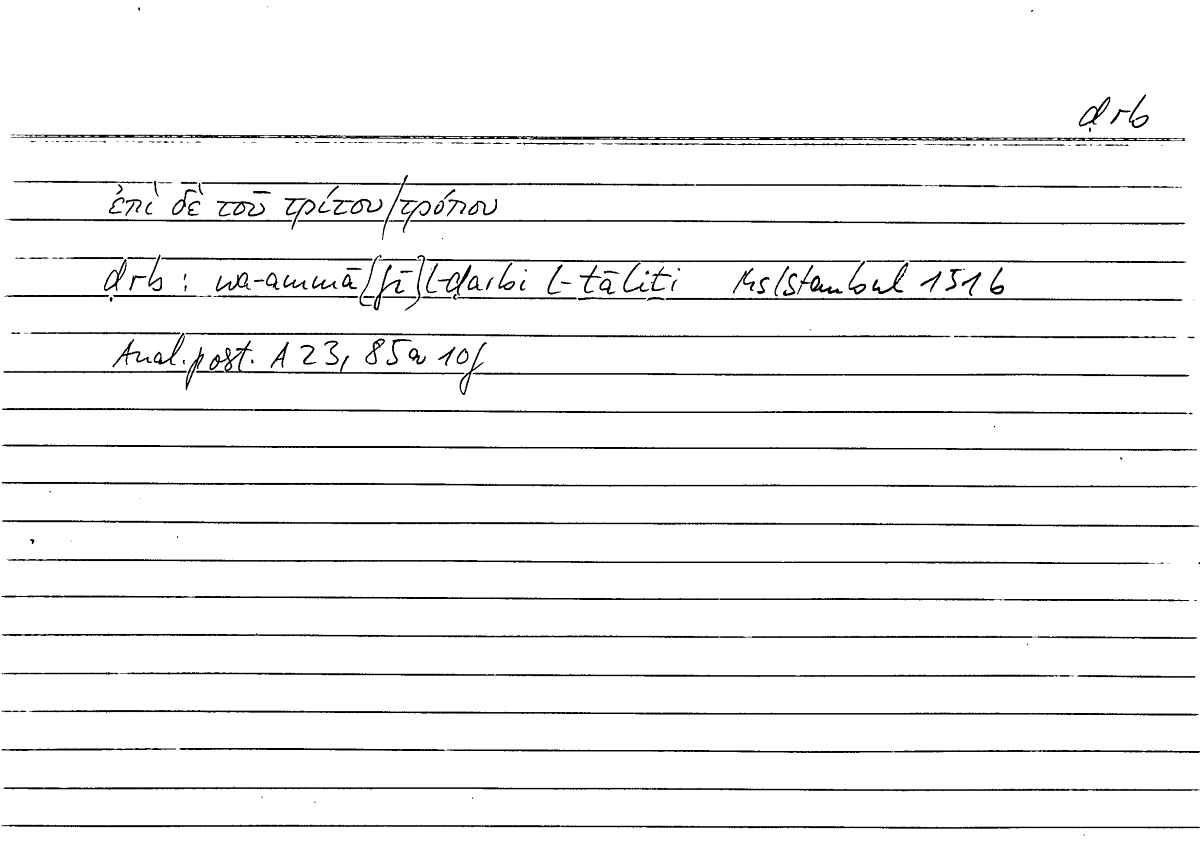 ḍrb
ἐπὶ δὲ τοῦ τρίτου/τρόπου
ḍrb : wa-ammā [fī] l-ḍarbi l-ṯāliṯi Ms Istanbul 151b
Anal. post. A 23, 85a 10f